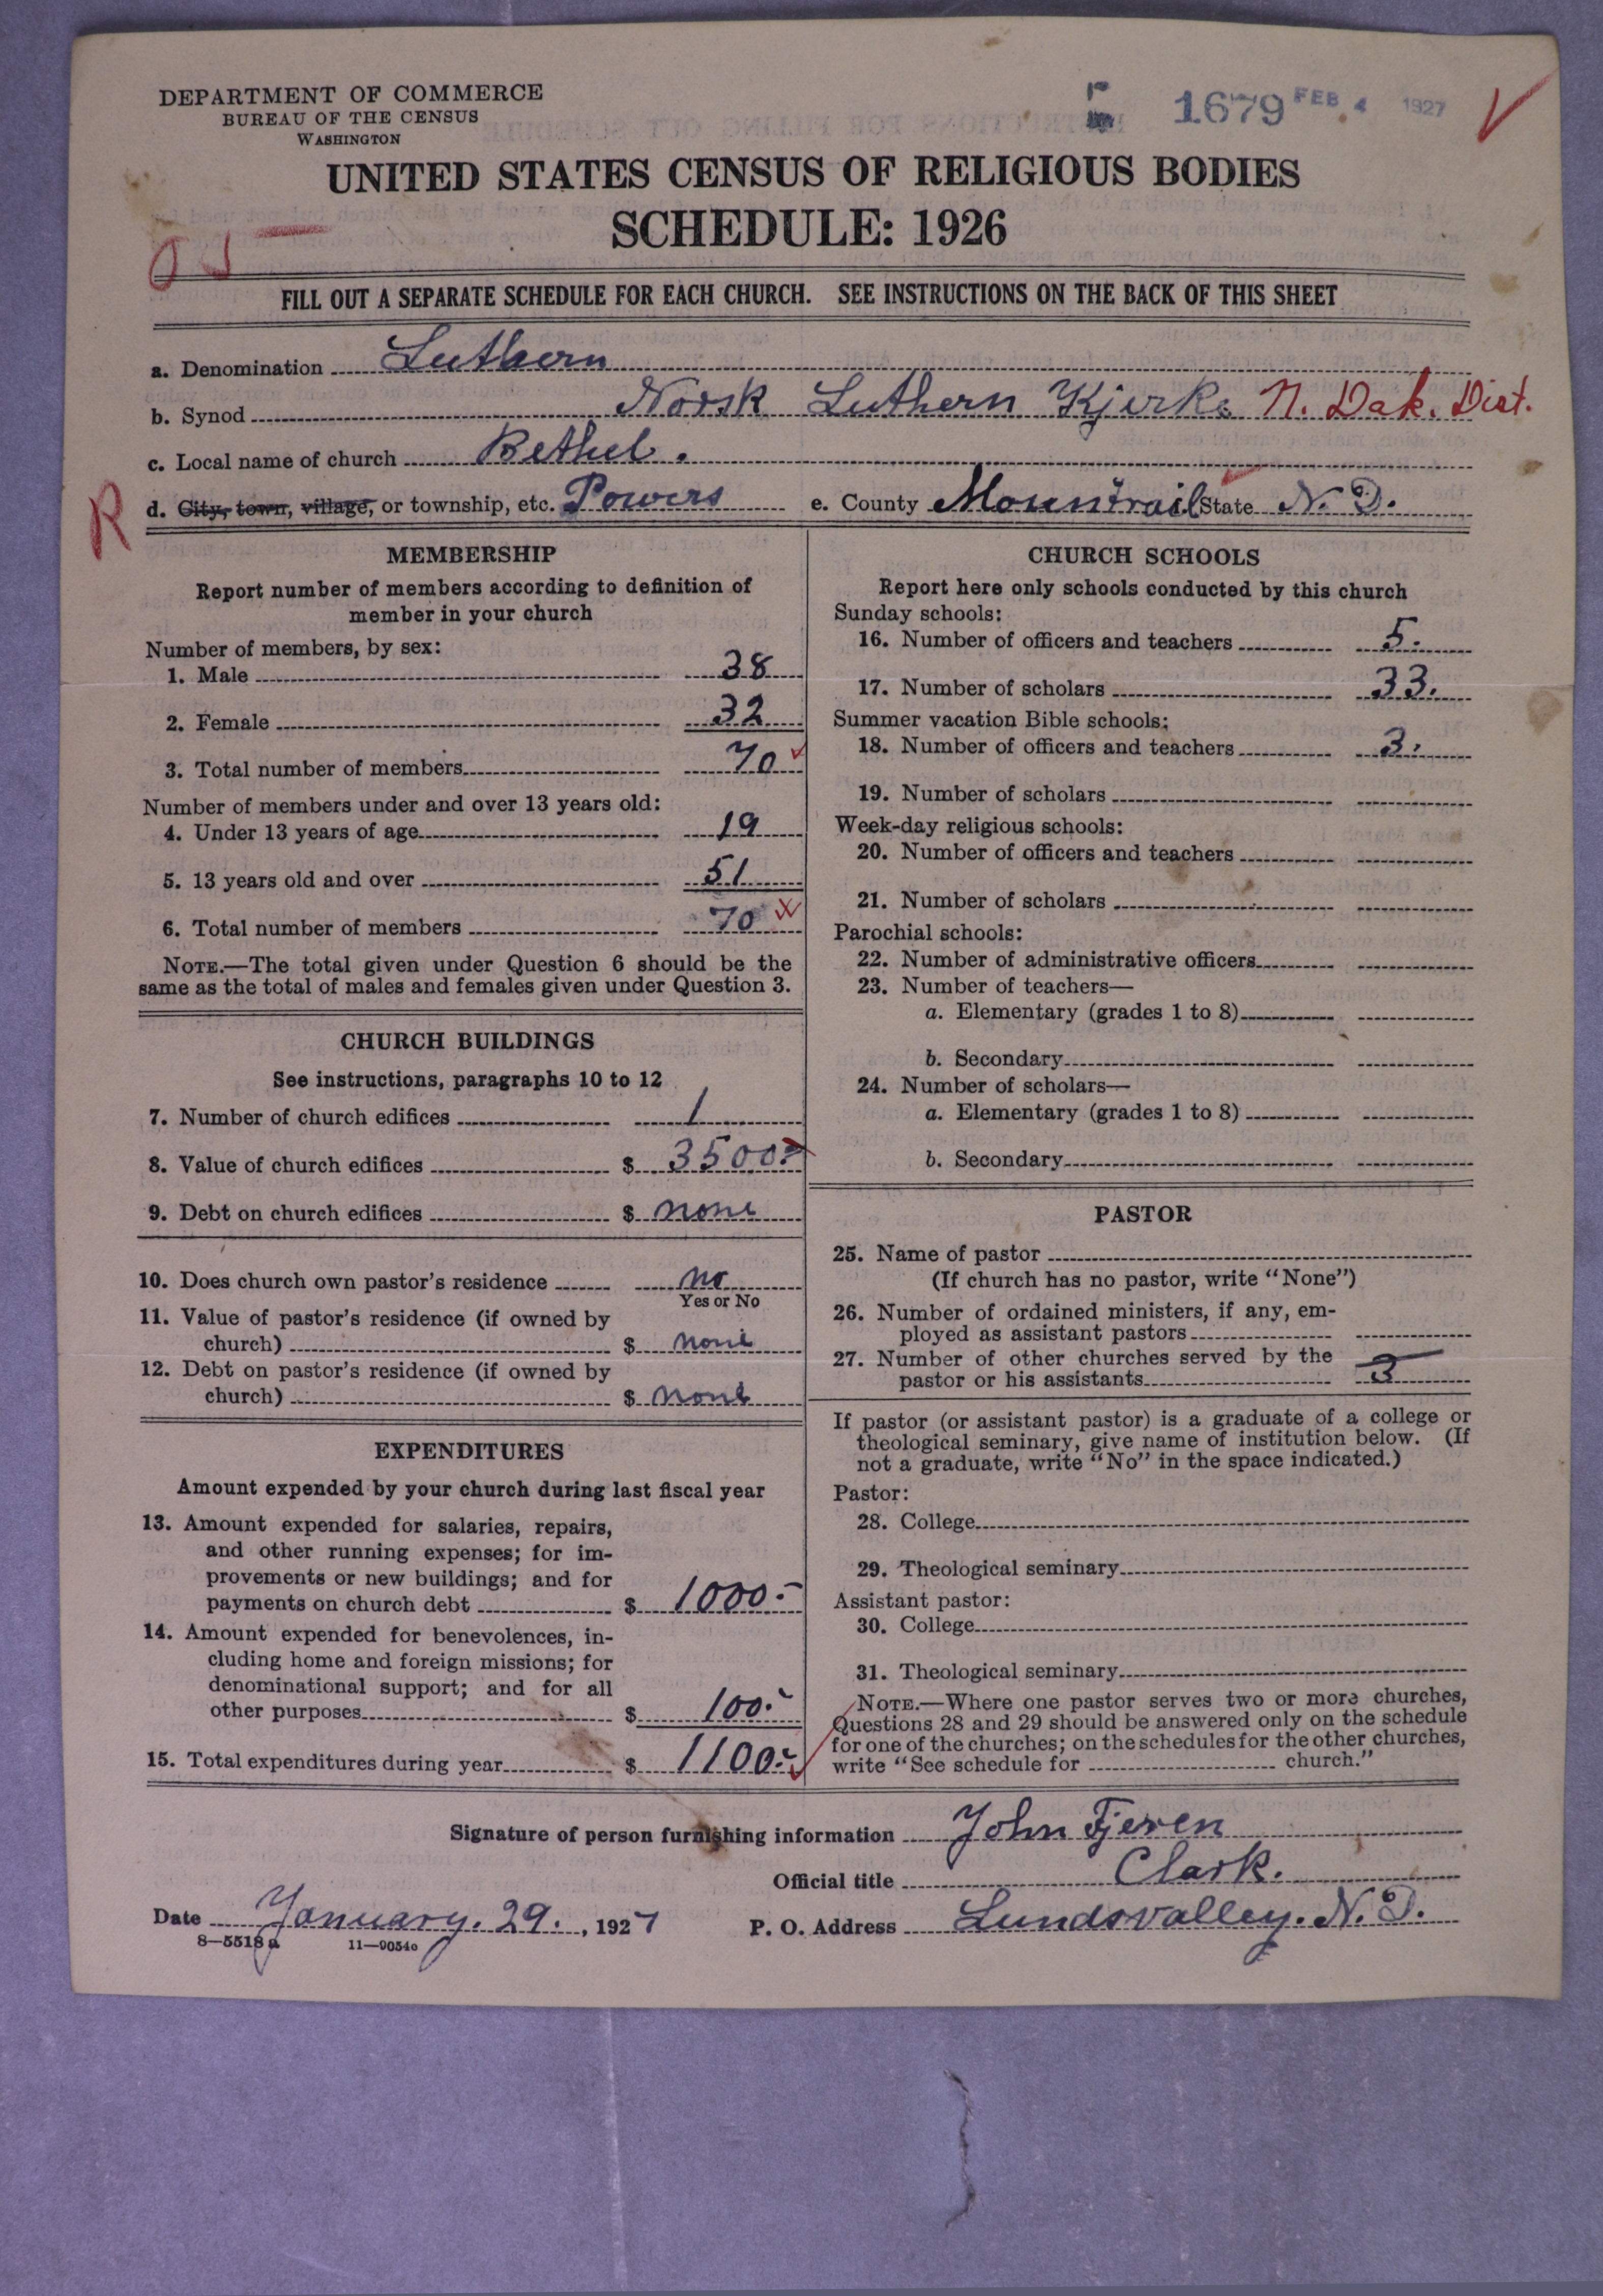 DEPARTMENT OF COMMERCE
BUREAU OF THE CENSUS
WASHINGTON
1679 FEB 4 1927
UNITED STATES CENSUS OF RELIGIOUS BODIES
SCHEDULE: 1926
FILL OUT A SEPARATE SCHEDULE FOR EACH CHURCH. SEE INSTRUCTIONS ON THE BACK OF THIS SHEET
a. Denomination Luthern
b. Synod Norsk Luthern Kjirke N. Dak. Dist.
c. Local name of church Bethel.
R
d. City, town, village, or township, etc. Powers e. County Mountrail State N. D.
MEMBERSHIP
Report number of members according to definition of
member in your church
Number of members, by sex:
1. Male 38
2. Female 32
3. Total number of members 70
Number of members under and over 13 years old:
4. Under 13 years of age 19
5. 13 years old and over 51
6. Total number of members 70
NOTE.—The total given under Question 6 should be the
same as the total of males and females given under Question 3.
CHURCH BUILDINGS
See instructions, paragraphs 10 to 12
7. Number of church edifices 1
8. Value of church edifices $ 3500.-
9. Debt on church edifices $ none
10. Does church own pastor's residence no
Yes or No
11. Value of pastor's residence (if owned by
church) $ none
12. Debt on pastor's residence (if owned by
church) $ none
EXPENDITURES
Amount expended by your church during last fiscal year
13. Amount expended for salaries, repairs,
and other running expenses; for im-
provements or new buildings; and for
payments on church debt $ 1000.-
14. Amount expended for benevolences, in-
cluding home and foreign missions; for
denominational support; and for all
other purposes $ 100.-
15. Total expenditures during year $ 1100.-
CHURCH SCHOOLS
Report here only schools conducted by this church
Sunday schools:
16. Number of officers and teachers 5.
17. Number of scholars 33.
Summer vacation Bible schools:
18. Number of officers and teachers 3.
19. Number of scholars
Week-day religious schools:
20. Number of officers and teachers
21. Number of scholars
Parochial schools:
22. Number of administrative officers
23. Number of teachers—
a. Elementary (grades 1 to 8)
b. Secondary
24. Number of scholars—
a. Elementary (grades 1 to 8)
b. Secondary
PASTOR
25. Name of pastor
(If church has no pastor, write "None")
26. Number of ordained ministers, if any, em-
ployed as assistant pastors
27. Number of other churches served by the
pastor or his assistants 3
If pastor (or assistant pastor) is a graduate of a college or
theological seminary, give name of institution below. (If
not a graduate, write "No" in the space indicated.)
Pastor:
28. College
29. Theological seminary
Assistant pastor:
30. College
31. Theological seminary
NOTE.—Where one pastor serves two or more churches,
Questions 28 and 29 should be answered only on the schedule
for one of the churches; on the schedules for the other churches,
write "See schedule for church."
Signature of person furnishing information John Fjeren
Official title Clark.
Date January. 29., 1927 P. O. Address Lundsvalley. N. D.
8—5518 a 11—9054o